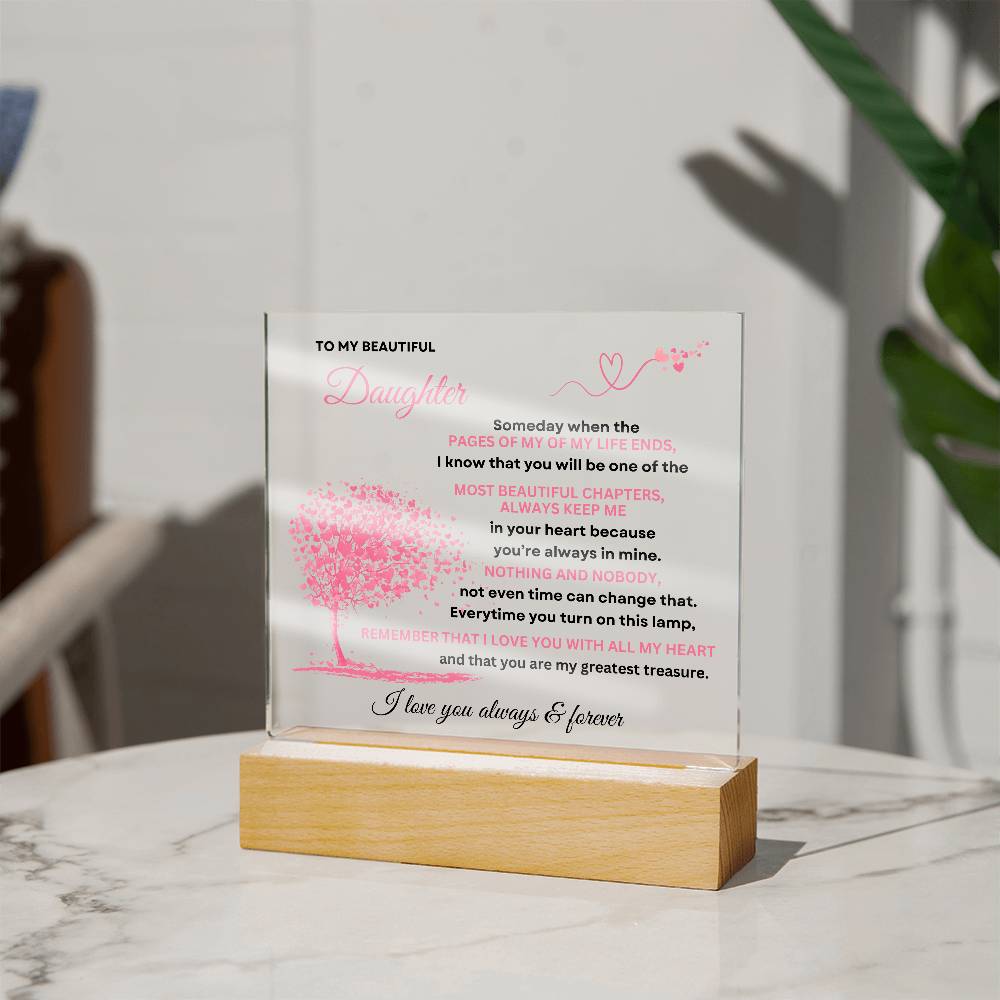 TO MY BEAUTIFUL
Daughter
Someday when the
PAGES OF MY OF MY LIFE ENDS,
I know that you will be one of the
MOST BEAUTIFUL CHAPTERS,
ALWAYS KEEP ME
in your heart because
you're always in mine.
NOTHING AND NOBODY,
not even time can change that.
Everytime you turn on this lamp,
REMEMBER THAT I LOVE YOU WITH ALL MY HEART
and that you are my greatest treasure.
I love you always & forever